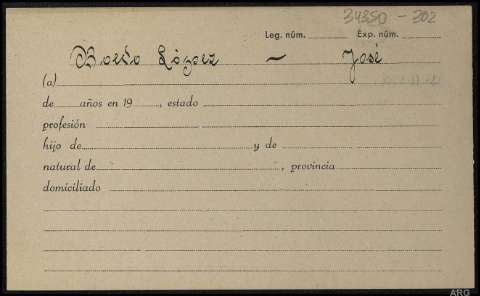 34350 - 302
Leg. núm. Exp. núm.
López ~ José
(a)
de años en 19 , estado
profesión
hijo de y de
natural de , provincia
domiciliado
ARG